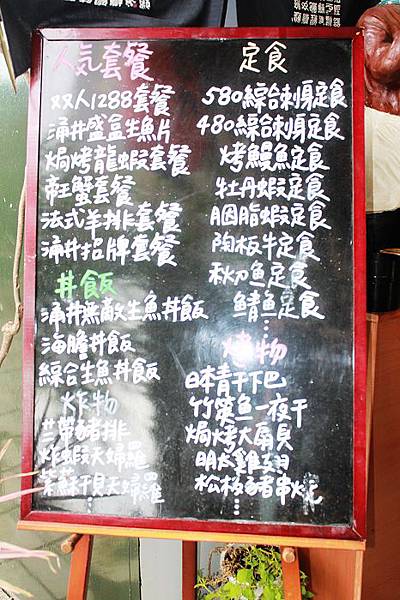 人気套餐
双人1288套餐
涌井盛盒生魚片
焗烤龍蝦套餐
帝王蟹套餐
法式羊排套餐
涌井招牌套餐
丼飯
涌井無敵生魚丼飯
海膽丼飯
綜合生魚丼飯
炸物
炸蝦天婦羅
紫蘇干貝天婦羅
...
定食
580綜合刺身定食
480綜合刺身定食
烤鰻魚定食
牡丹蝦定食
胭脂蝦定食
陶板牛定食
秋刀魚定食
鯖魚定食
...
烤物
日本青干下巴
竹筴魚一夜干
焗烤大扇貝
明太雞翅
松板豬串燒
...